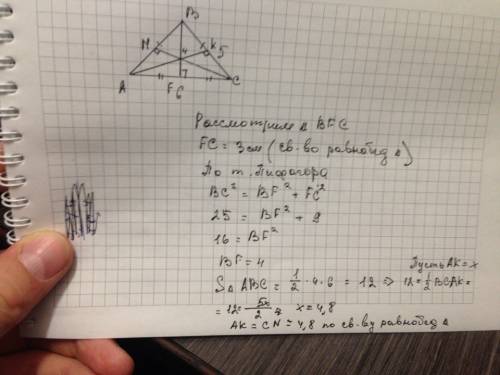 B
N
K
4
5
A
F
C
6
Рассмотрим Δ BFC
FC = 3 см (св-во равнобед Δ)
По т. Пифагора
BC² = BF² + FC²
25 = BF² + 9
16 = BF²
BF = 4
Пусть AK = x
S Δ ABC = 1/2 · 4 · 6 = 12 ⇒ 12 = 1/2 BC·AK =
= 12 = 5x/2 x = 4,8
AK = CN = 4,8 по св-ву равнобед Δ